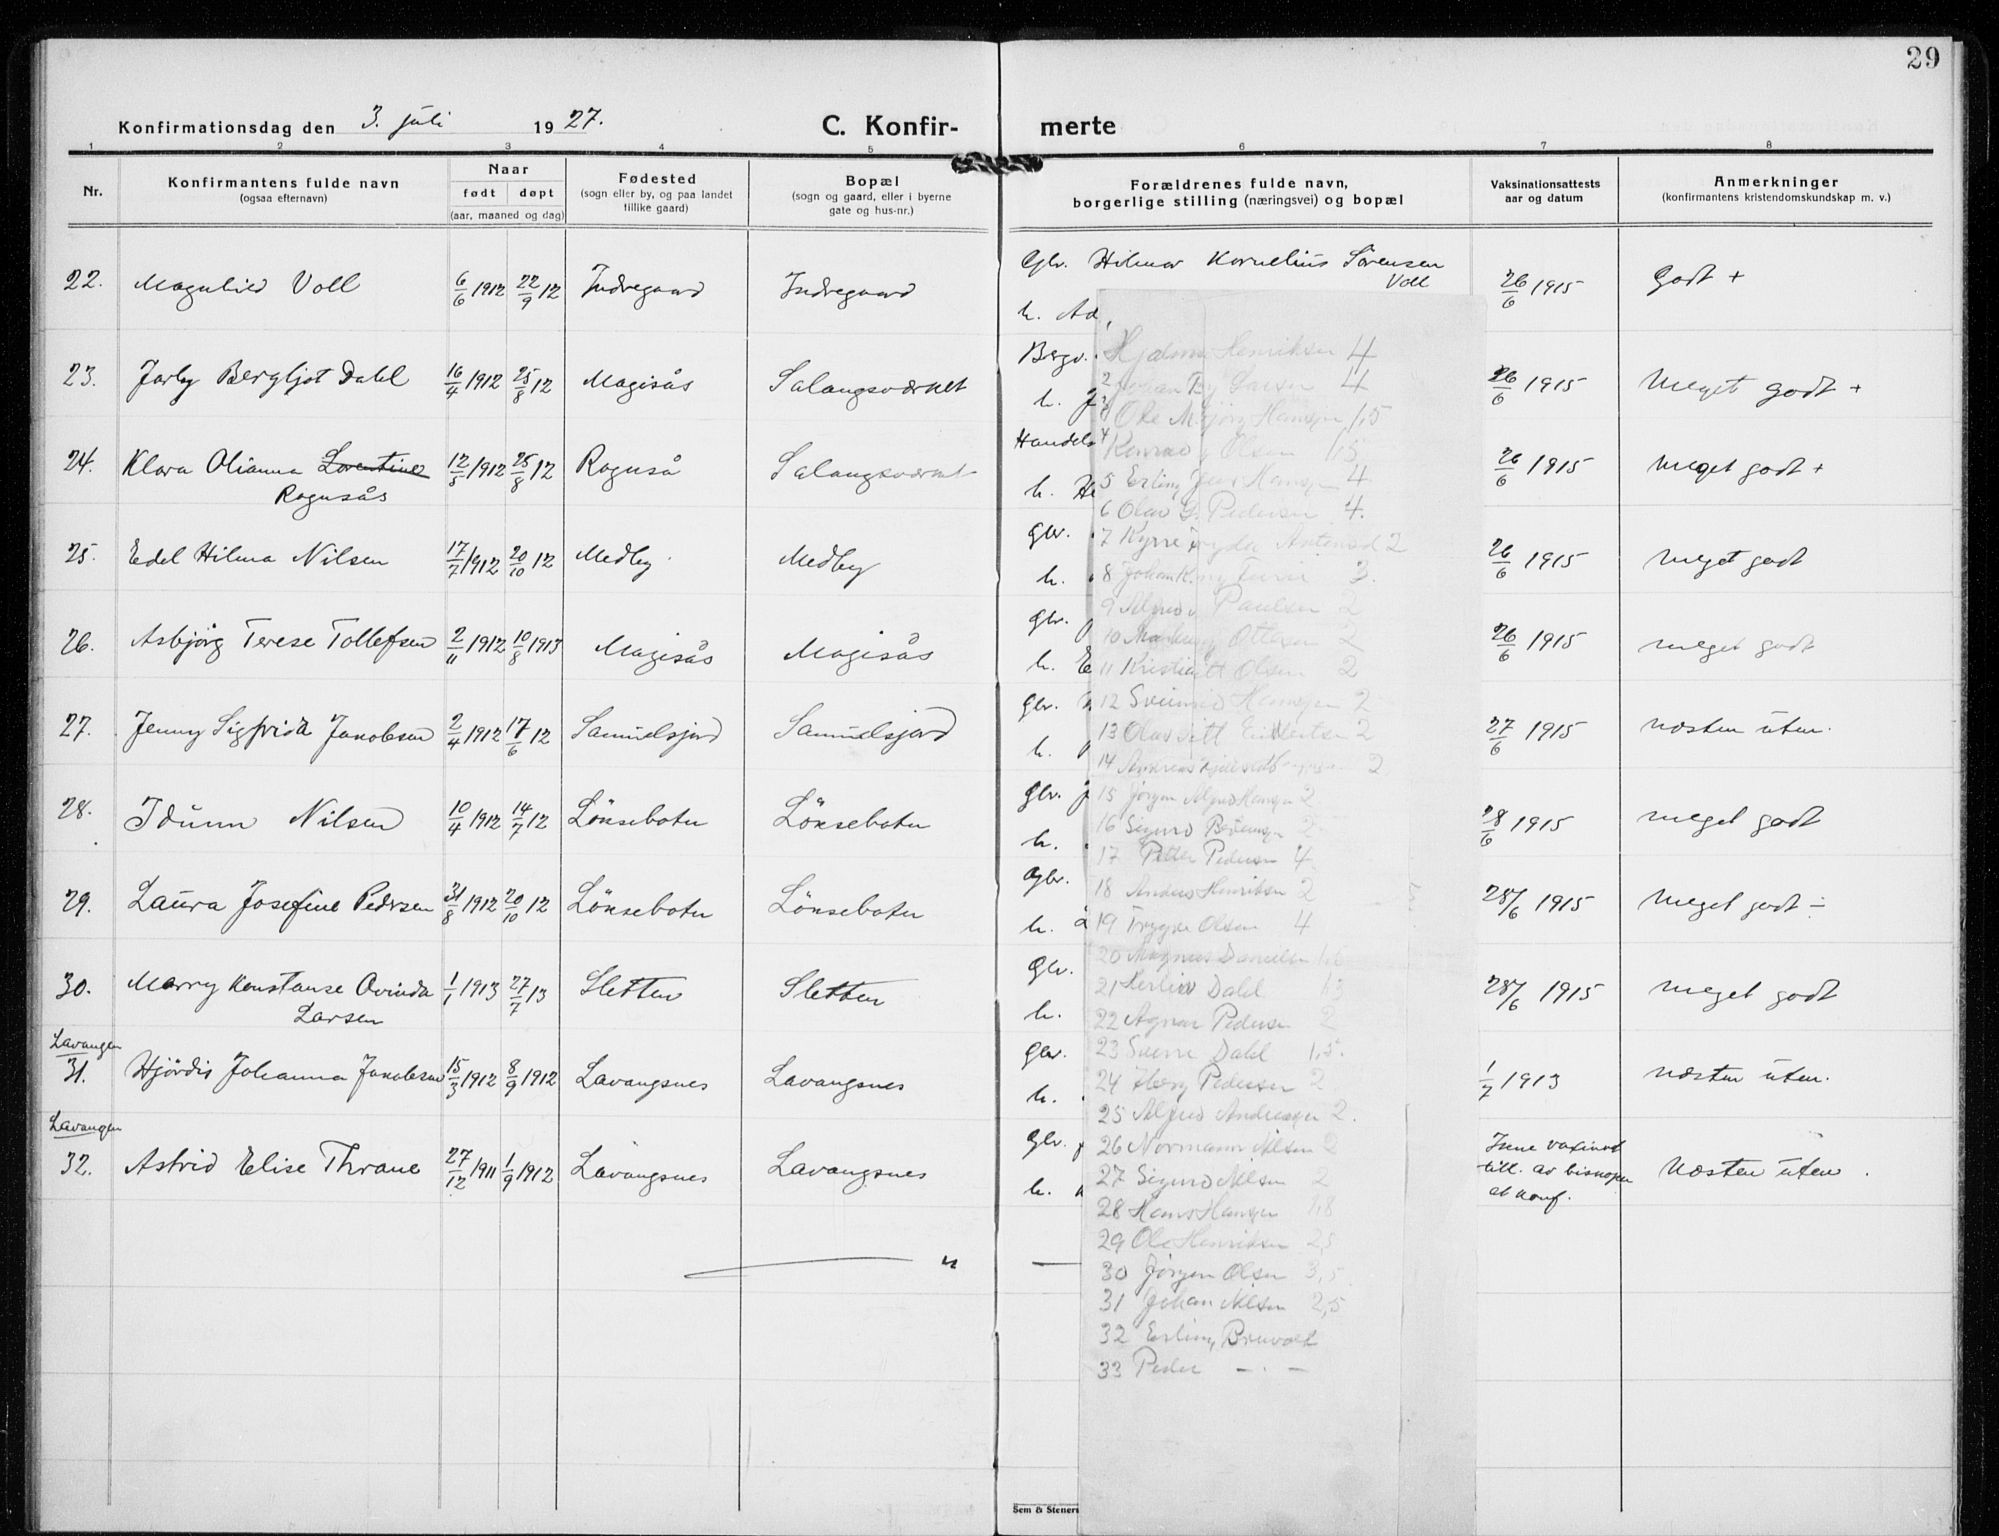 29
Konfirmationsdag den 3. juli 1927.
C. Konfir-
merte
1 2 3 4 5 6 7 8
Nr.
Konfirmantens fulde navn
(ogsaa efternavn)
Naar
født døpt
(aar, maaned og dag)
Fødested
(sogn eller by, og paa landet
tillike gaard)
Bopæl
(sogn og gaard, eller i byerne
gate og hus-nr.)
Forældrenes fulde navn,
borgerlige stilling (næringsvei) og bopæl
Vaksinationsattests
aar og datum
Anmerkninger
(konfirmantens kristendomskundskap m. v.)
22. Magnhild Voll 6/6 1912 22/9 12 Indregaard Indregaard Gbr. Hilmar Kornelius Sørensen
Voll 26/6 1915 Godt +
h. Ad
23. Jarly Bergljot Dahl 16/4 1912 25/8 12 Magisås Salangsværket Bergv. 26/6 1915 Meget godt +
h. J
24. Klara Olianna Lorentine 12/8 1912 25/8 12 Rognså Salangsværket Handels 26/6 1915 Meget godt +
Rognsås h. He
25. Edel Hilma Nilsen 17/7 1912 20/10 12 Medby Medby Gbr. 26/6 1915 Meget godt
h.
26. Asbjørg Terese Tollefsen 2/11 1912 10/8 1913 Magisås Magisås Gbr. 26/6 1915 meget godt
h. E
27. Jenny Sigfrida Jakobsen 2/4 1912 17/6 12 Samuelsjord Samuelsjord Gbr. 27/6 1915 næsten uten.
h.
28. Idunn Nilsen 10/4 1912 14/7 12 Lönsebotn Lönsebotn Gbr. 28/6 1915 meget godt
h.
29. Laura Josefine Pedersen 31/8 1912 20/10 12 Lönsebotn Lönsebotn Gbr. 28/6 1915 Meget godt ÷
h.
30. Marry Konstanse Ovinda 1/1 1913 27/7 13 Sletten Sletten Gbr. 28/6 1915 Meget godt
Larsen h.
Lavangen
31. Hjördis Johanna Jakobsen 15/3 1912 8/9 1912 Lavangsnes Lavangsnes Gbr. 1/7 1913 Næsten uten.
h.
Lavangen
32. Astrid Elise Thrane 27/12 1911 1/9 1912 Lavangsnes Lavangsnes Gbr. Næsten uten.
till. av biskopen
at konf.
h.
Hjalmar Henriksen 4
2 Johan Larsen 4
3 Ole Hansen 1,5
4 Konrad Olsen 1,5
5 Erling Jens Hansen 4
6 Olav L. Pedersen 4.
7 Kyrre 2
8 Johan K. 3.
9 Alfred Paulsen 2
10 Ottesen 2
11 Kristian Olsen 2
12 Hansen 2
13 Olav 2
14 Andreas 2
15 Jørgen Alfred Hansen 2
16 Sigurd 2
17 Petter Pedersen 4
18 Anders Henriksen 2
19 Trygve Olsen 4
20 Magnus Danielsen 1,6
21 Dahl 1,3
22 Agnar Pedersen 2
23 Sverre Dahl 1,5.
24 Pedersen 2
25 Alfred Andreasen 2.
26 Normann Nilsen 2
27 Sigurd Nilsen 2
28 Hans Hansen 1,8
29 Ole Henriksen 2,5
30 Jørgen Olsen 3,5
31 Johan Nilsen 2,5
32 Erling Bruvold
33 Peder — . —
Sem & Steners